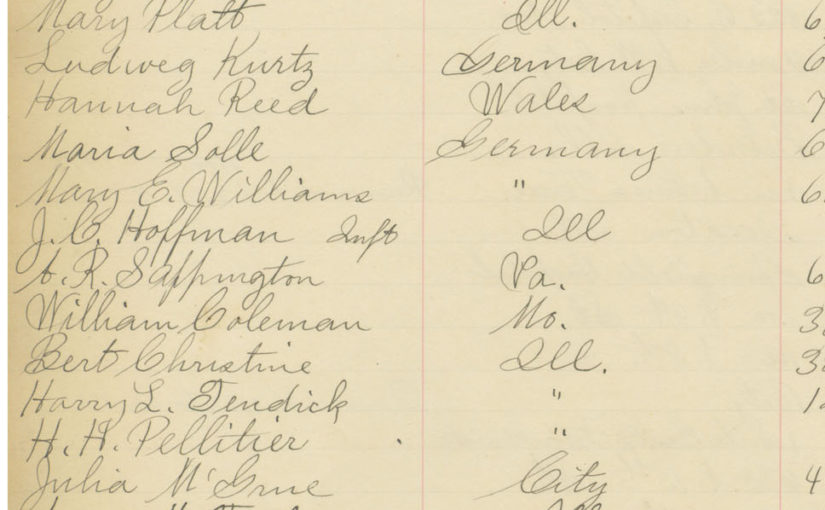 Mary Platt Ill. 6
Ludweg Kurtz Germany 6
Hannah Reed Wales 7
Maria Solle Germany 6
Mary E. Williams " 6
J. C. Hoffman Inft Ill
A. R. Sappington Va. 6
William Coleman Mo. 3
Bert Christine Ill. 3
Harry L. Tendick " 1
H. H. Pellitier "
Julia McGrue City 4